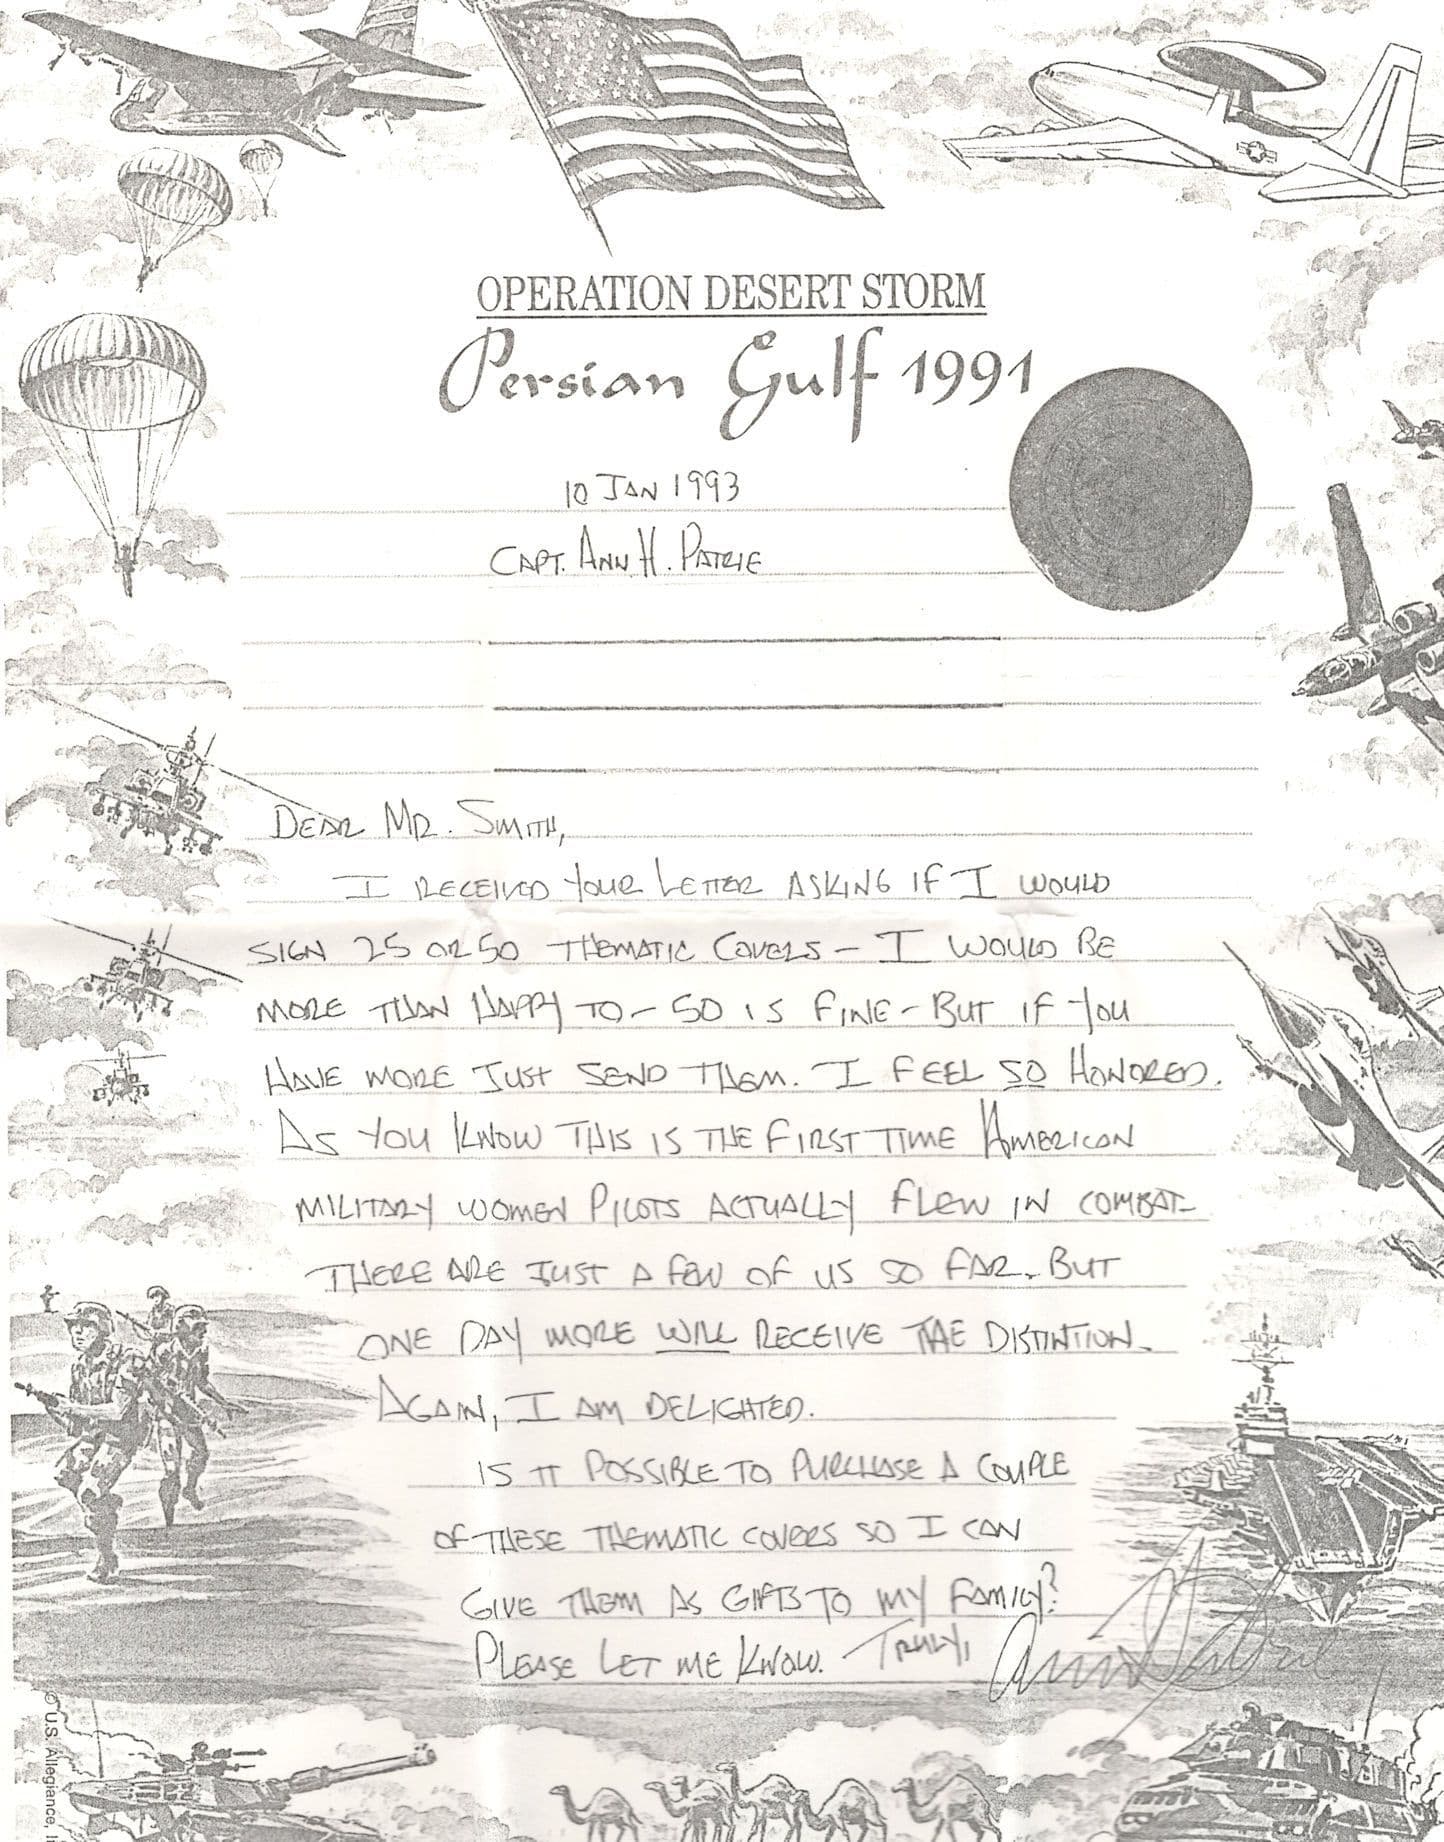 OPERATION DESERT STORM
Persian Gulf 1991
10 JAN 1993
CAPT. ANN H. PATRIE
DEAR MR. SMITH,
I RECEIVED YOUR LETTER ASKING IF I WOULD
SIGN 25 OR 50 THEMATIC COVERS – I WOULD BE
MORE THAN HAPPY TO – 50 IS FINE – BUT IF YOU
HAVE MORE JUST SEND THEM. I FEEL SO HONORED.
AS YOU KNOW THIS IS THE FIRST TIME AMERICAN
MILITARY WOMEN PILOTS ACTUALLY FLEW IN COMBAT–
THERE ARE JUST A FEW OF US SO FAR. BUT
ONE DAY MORE WILL RECEIVE THE DISTINTION.
AGAIN, I AM DELIGHTED.
IS IT POSSIBLE TO PURCHASE A COUPLE
OF THESE THEMATIC COVERS SO I CAN
GIVE THEM AS GIFTS TO MY FAMILY?
PLEASE LET ME KNOW. TRULY,
© U.S. Allegiance, I